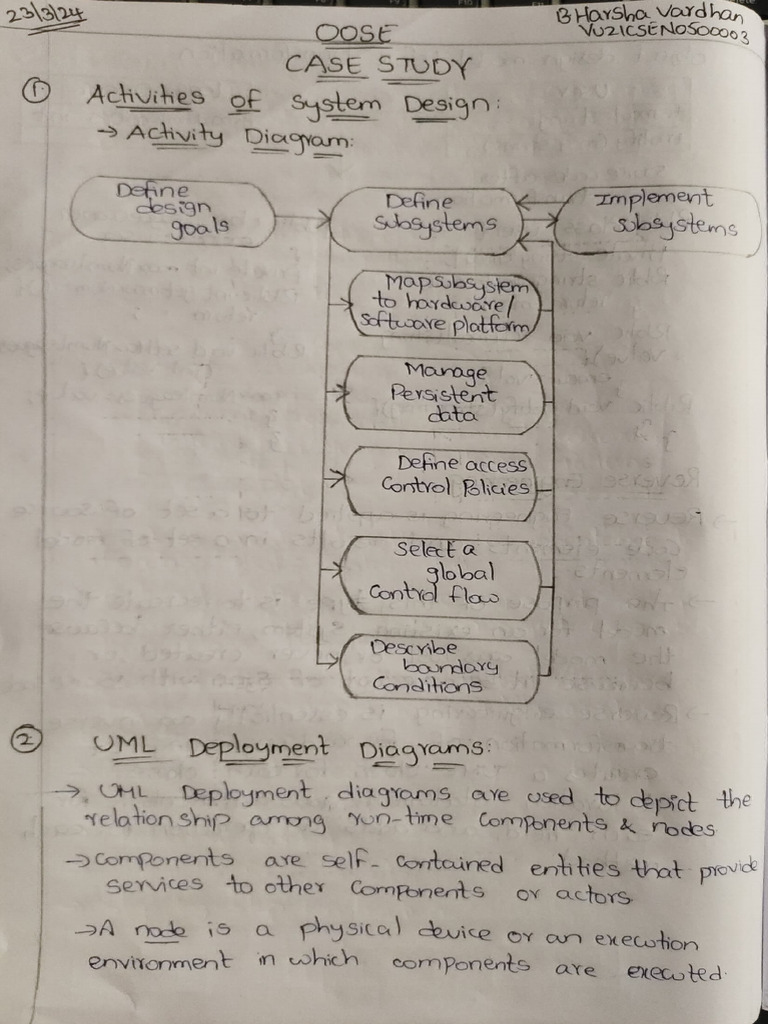 23/3/24
B Harsha Vardhan
VU21CSEN0500003
OOSE
CASE STUDY
① Activities of System Design:
→ Activity Diagram:
Define
design
goals
Define
subsystems
Implement
subsystems
Map subsystem
to hardware/
software platform
Manage
Persistent
data
Define access
Control Policies
Select a
global
Control flow
Describe
boundary
Conditions
② UML Deployment Diagrams:
→ UML Deployment diagrams are used to depict the
relationship among run-time components & nodes
→ Components are self-contained entities that provide
services to other components or actors
→ A node is a physical device or an execution
environment in which components are executed.